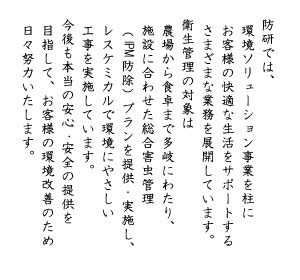 防研では、
環境ソリューション事業を柱に
お客様の快適な生活をサポートする
さまざまな業務を展開しています。
衛生管理の対象は
農場から食卓まで多岐にわたり、
施設に合わせた総合害虫管理
（IPM防除）プランを提供・実施し、
レスケミカルで環境にやさしい
工事を実施しています。
今後も本当の安心・安全の提供を
目指して、お客様の環境改善のため
日々努力いたします。